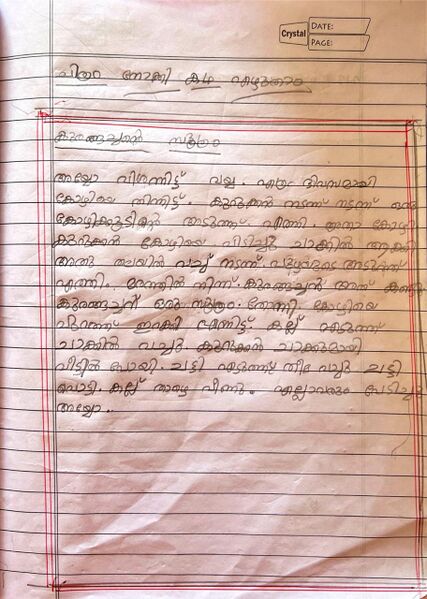 Crystal
DATE:
PAGE:
ചിത്രം നോക്കി കഥ എഴുതാം
കുരങ്ങച്ചന്റെ സൂത്രം
അയ്യോ വിശന്നിട്ട് വയ്യ. എത്ര ദിവസമായി
കോഴിയെ തിന്നിട്ട്. കുറുക്കൻ നടന്ന് നടന്ന് ഒരു
കോഴിക്കൂടിന്റെ അടുത്ത് എത്തി. അതാ കോഴി
കുറുക്കൻ കോഴിയെ പിടിച്ചു ചാക്കിൽ ആക്കി
അതു തലയിൽ വച്ച് നടന്ന് അടുത്ത്
എത്തി. മരത്തിൽ നിന്ന് കുരങ്ങച്ചൻ അത് കണ്ടു
കുരങ്ങച്ചന് ഒരു സൂത്രം തോന്നി കോഴിയെ
പുറത്ത് ഇറക്കി എന്നിട്ട് കല്ല് എടുത്ത്
ചാക്കിൽ വച്ചു. കുറുക്കൻ ചാക്കുമായി
വീട്ടിൽ പോയി. ചട്ടി എടുത്ത് തീ വച്ചു ചട്ടി
പൊട്ടി. കല്ല് താഴെ വീണു. എല്ലാവരും പേടിച്ചു
അയ്യോ..